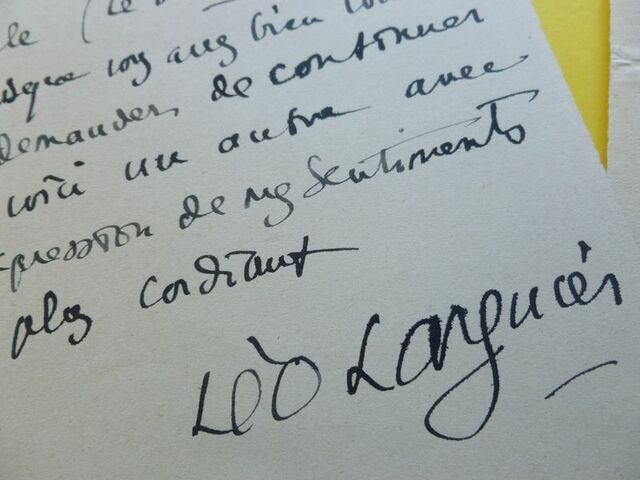 le (le
que vous avez bien vou
demander de continuer
voici un autre avec
xpression de mes sentiments
plus cordiaux
Léo Larguier